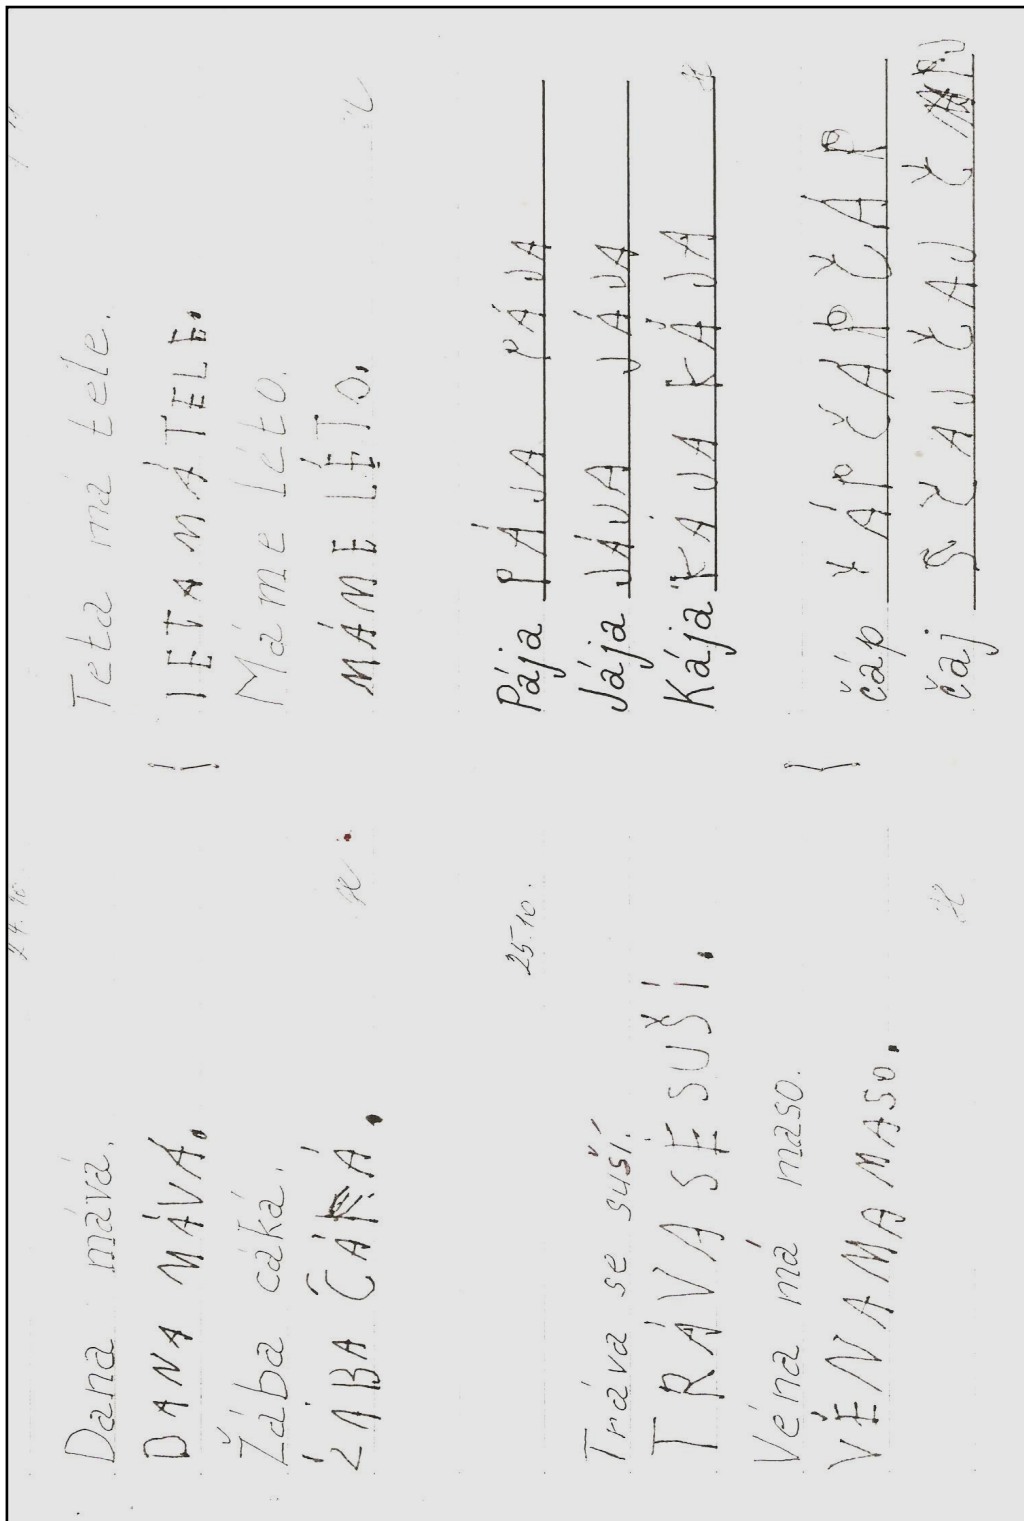 24.10.
Dana mává.
DANA MÁVÁ.
Žába cáká.
ŹABA CÁKÁ.
Teta má tele.
TETA MÁ TELE.
Máme léto.
MÁME LÉTO.
25.10.
Tráva se suší.
TRÁVA SE SUŠÍ.
Véna má maso.
VÉNAMAMASO.
Pája PÁJA PÁJA
Jája JÁJA JÁJA
Kája KÁJA KÁJA
čáp ČÁP ČÁP ČÁP
čaj Š ČAJ ČAJ Č